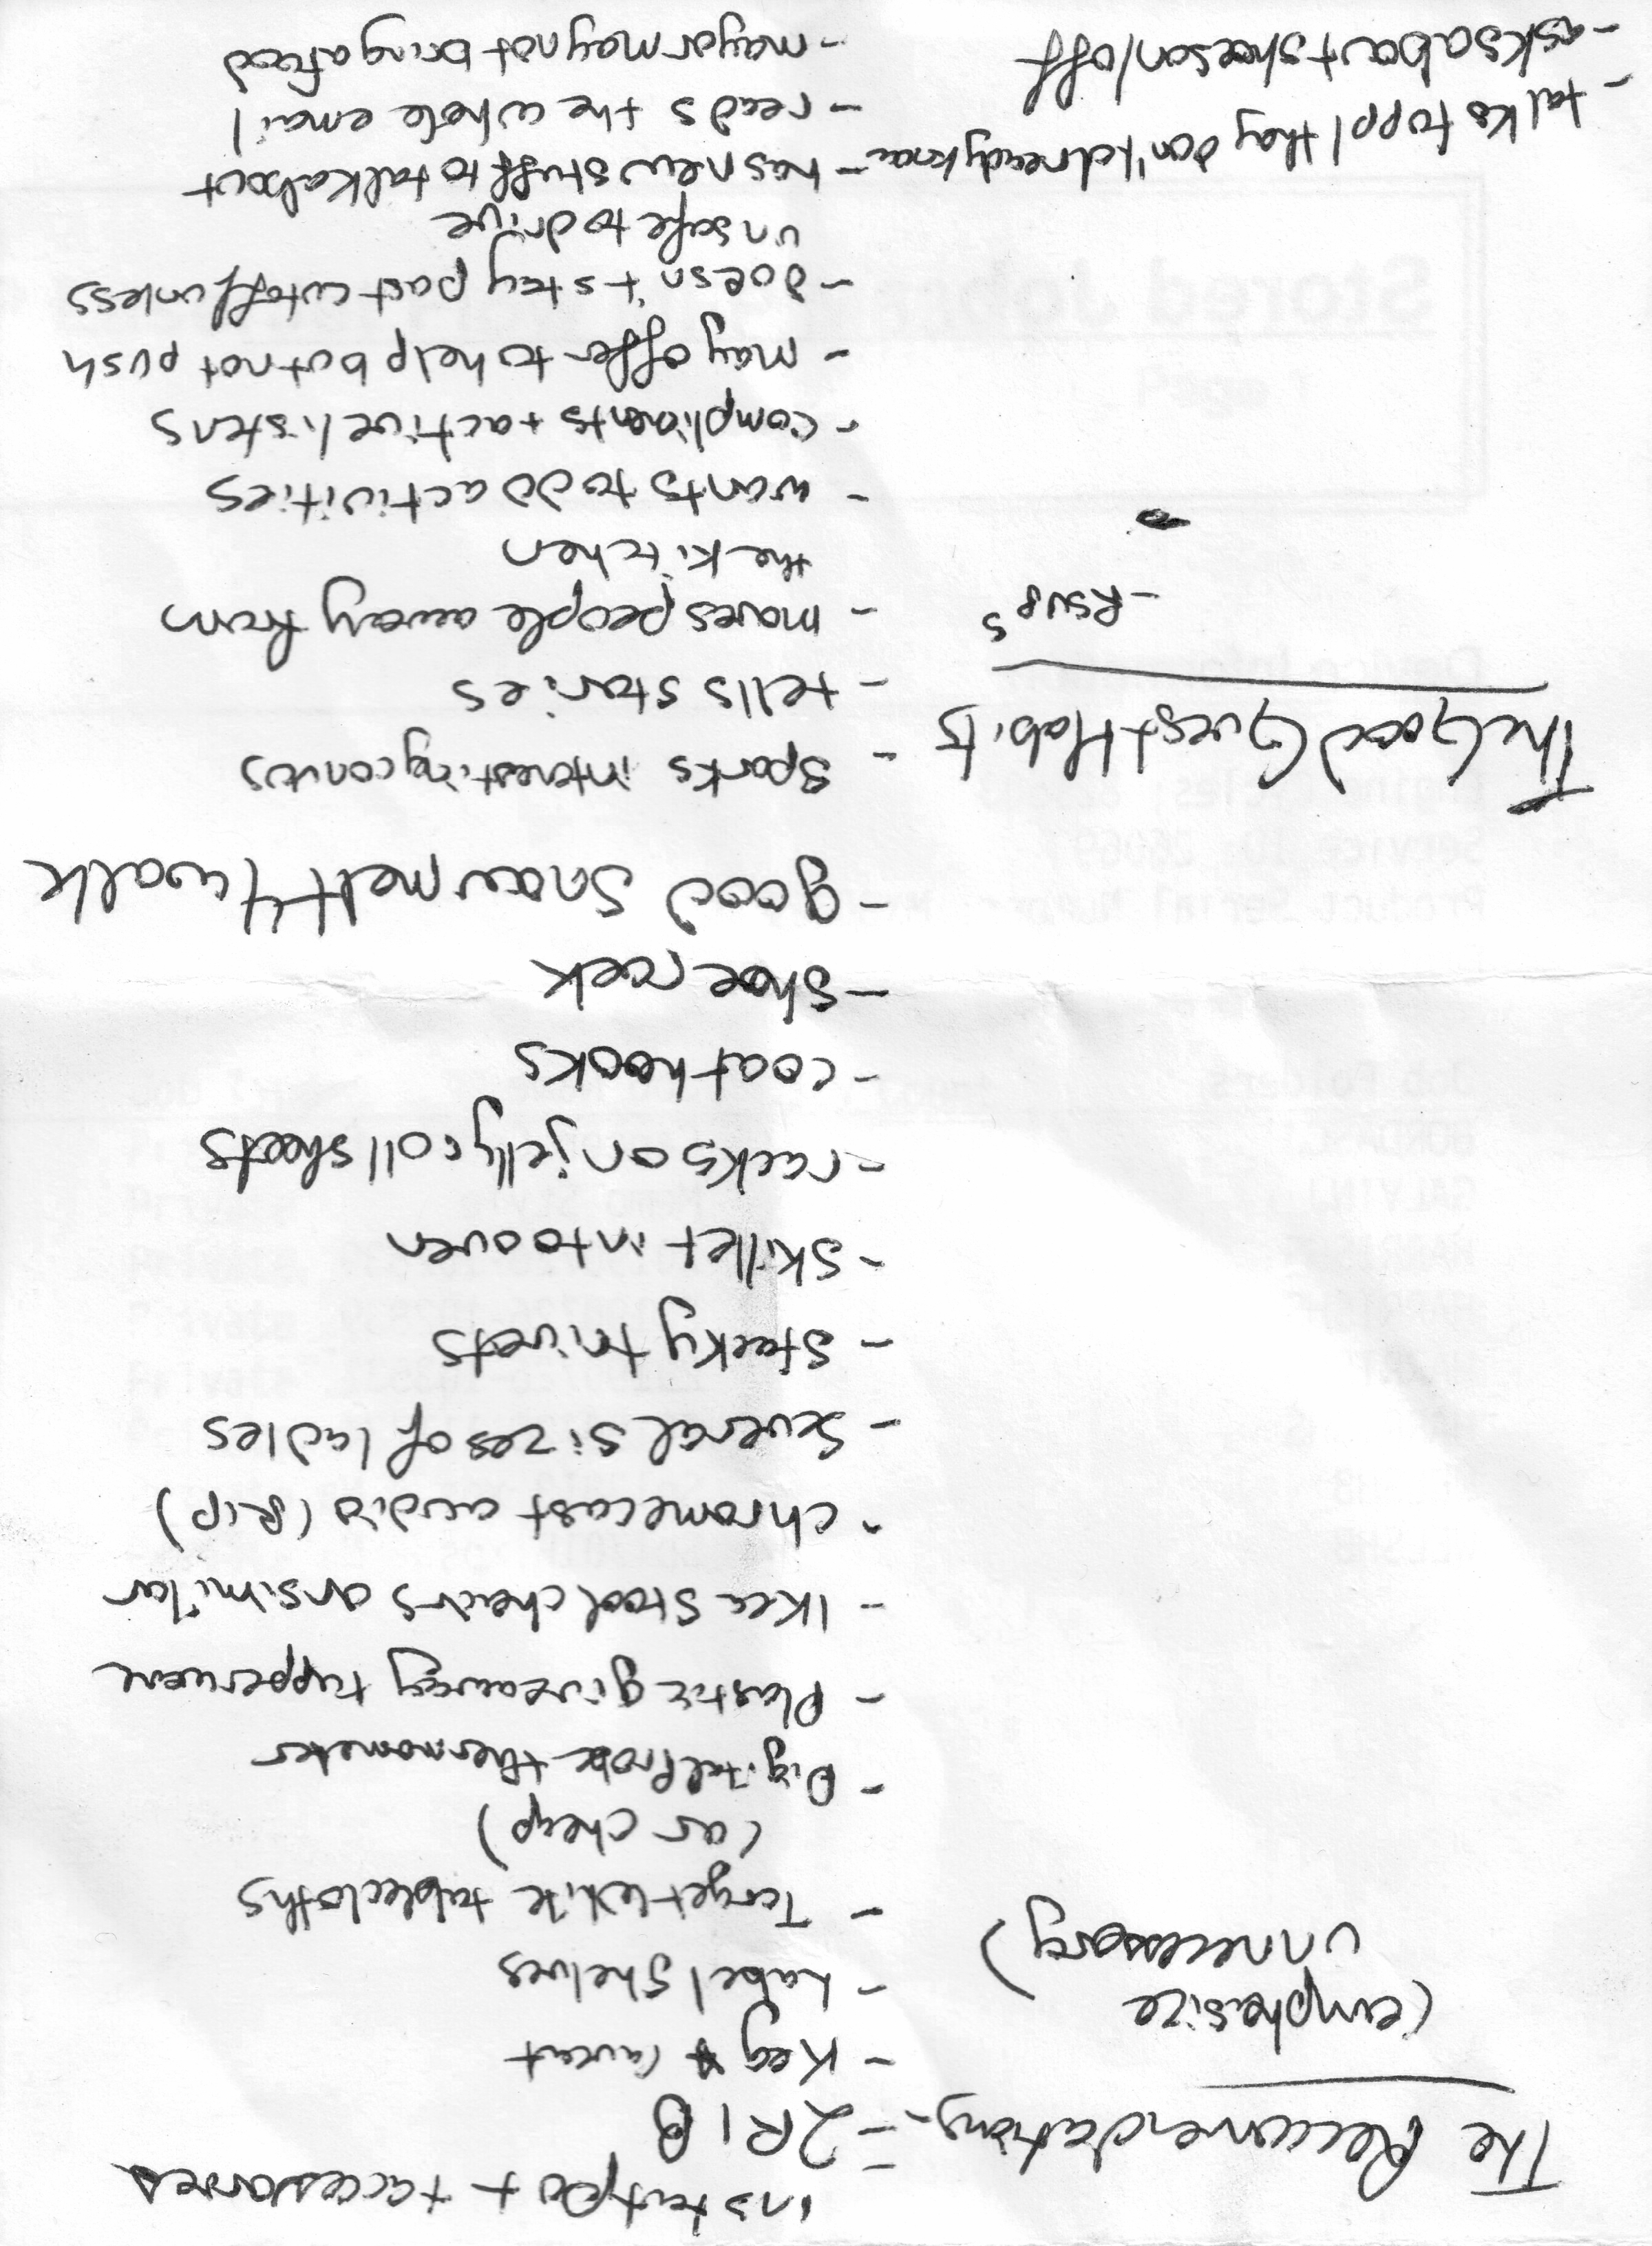 The Recommendations
(emphasize
unnecessary)
instantpot + accessories
- 2R1B
- Keg
- Label Shelves
- Target white tablecloths
(or cheap)
- Digital Probe thermometer
- Plastic giveaway tupperware
- Ikea stool chairs or similar
- chromecast audio (RIP)
- Several sizes of ladles
- Stacky trivets
- Skillet into oven
- racks on jelly roll sheets
- coat hooks
- Shoe rack
- good snow melt 4 walk
The Good Guest Habits
- RSVPs
- sparks interesting convos
- tells stories
- moves people away from
the kitchen
- wants to do activities
- compliments + active listens
- may offer to help but not push
- doesn't stay past cutoff unless
unsafe to drive
- has new stuff to talk about
- reads the whole email
- may or may not bring a food
- talks to ppl they don't already know
- asks about shoes on/off